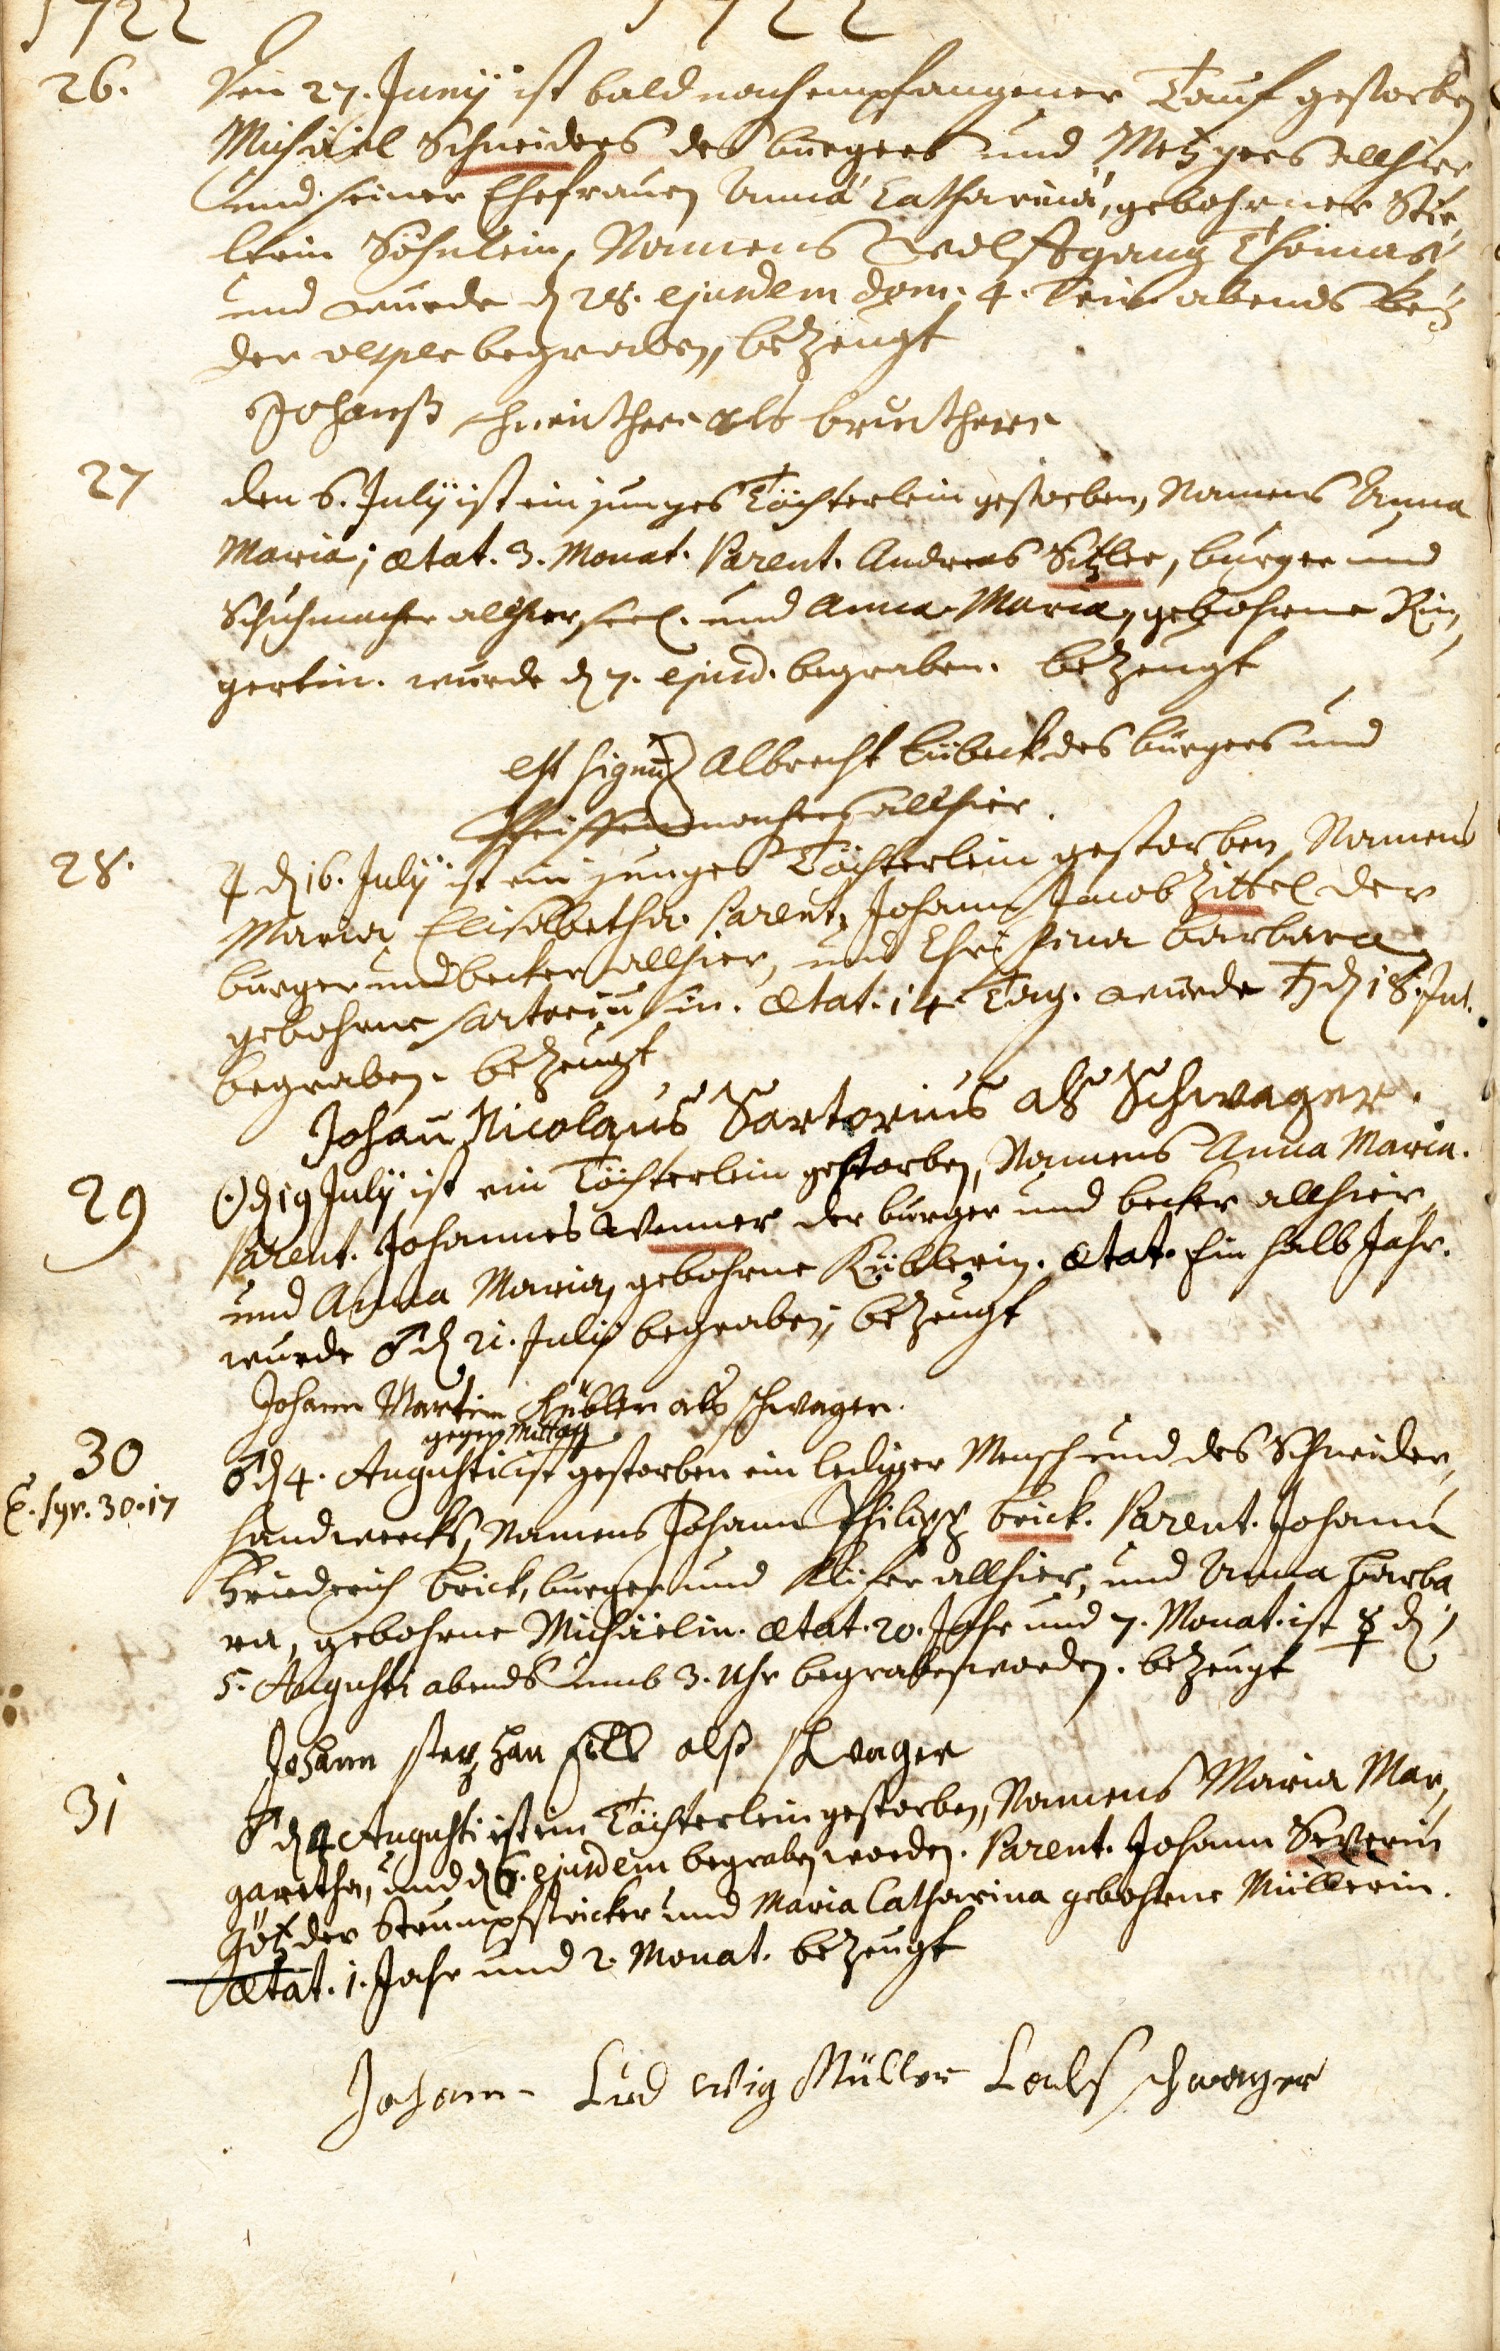 1722 1722
26. Den 27. Junij ist bald nach empfangener Tauf gestorben
Michäel Schneiders des burgers und Metzgers allhier
und seiner Ehefrauen Annä Catharinä, gebohrner
Söhnlein, Namens Wolffgang Thomas,
und wurde d 28. ejusdem dom. 4. Trin. abends bei
der vesper begraben, bezeugt
Johanß als
27 den 6. Julij ist ein junges Töchterlein gestorben, Namens Anna
Maria; ætat. 3. Monat. Parent. Andreas Sitzler, burger und
Schuhmacher allhier, seel. und Anna Maria, gebohrne Rin,
gertin. wurde d 7. ejusd. begraben. bezeugt
est signum Albrecht Lübeck des burgers und
allhier.
28. ♃ d 16. Julij ist ein junges Töchterlein gestorben, Namens
Maria Elisabetha. Parent. Johann Jacob Zittel der
burger und becker allhier, und Christina barbara
gebohrne Sartoriusin. ætat. 14 Tag. wurde ♄ d 18. Jul.
begraben. bezeugt
Johan Nicolaus Sartorius als Schwager.
29 ☉ d 19 Julij ist ein Töchterlein gestorben, Namens Anna Maria.
Parent. Johannes Wenner der burger und becker allhier,
und Anna Maria, gebohrne Küblerin. ætat. Ein halb Jahr.
wurde ♂ d 21. Julij begraben; bezeugt
Johann Martin Kübler als schwager.
gegen Mittag
30 ♂ d 4. Augusti ist gestorben ein lediger Mensch und des Schneider,
E. Syr. 30. 17 handwercks, Namens Johann Philipp brick. Parent. Johann
Friedrich brick, burger und allhier, und Anna barba
ra, gebohrne Michäelin. ætat. 20. Jahr und 7. Monat. ist ☿ d
5. Augusti abends umb 3. Uhr begraben worden. bezeugt
Johann stephan als schwager
31 ♂ d 4 Augusti ist ein Töchterlein gestorben, Namens Maria Mar,
garetha, und d 6. ejusdem begraben worden. Parent. Johann Severin
Götz der Strumpfstricker und Maria Catharina gebohrne Müllerin.
ætat. 1. Jahr und 2. Monat. bezeugt
Johann Ludwig Müller als schwager